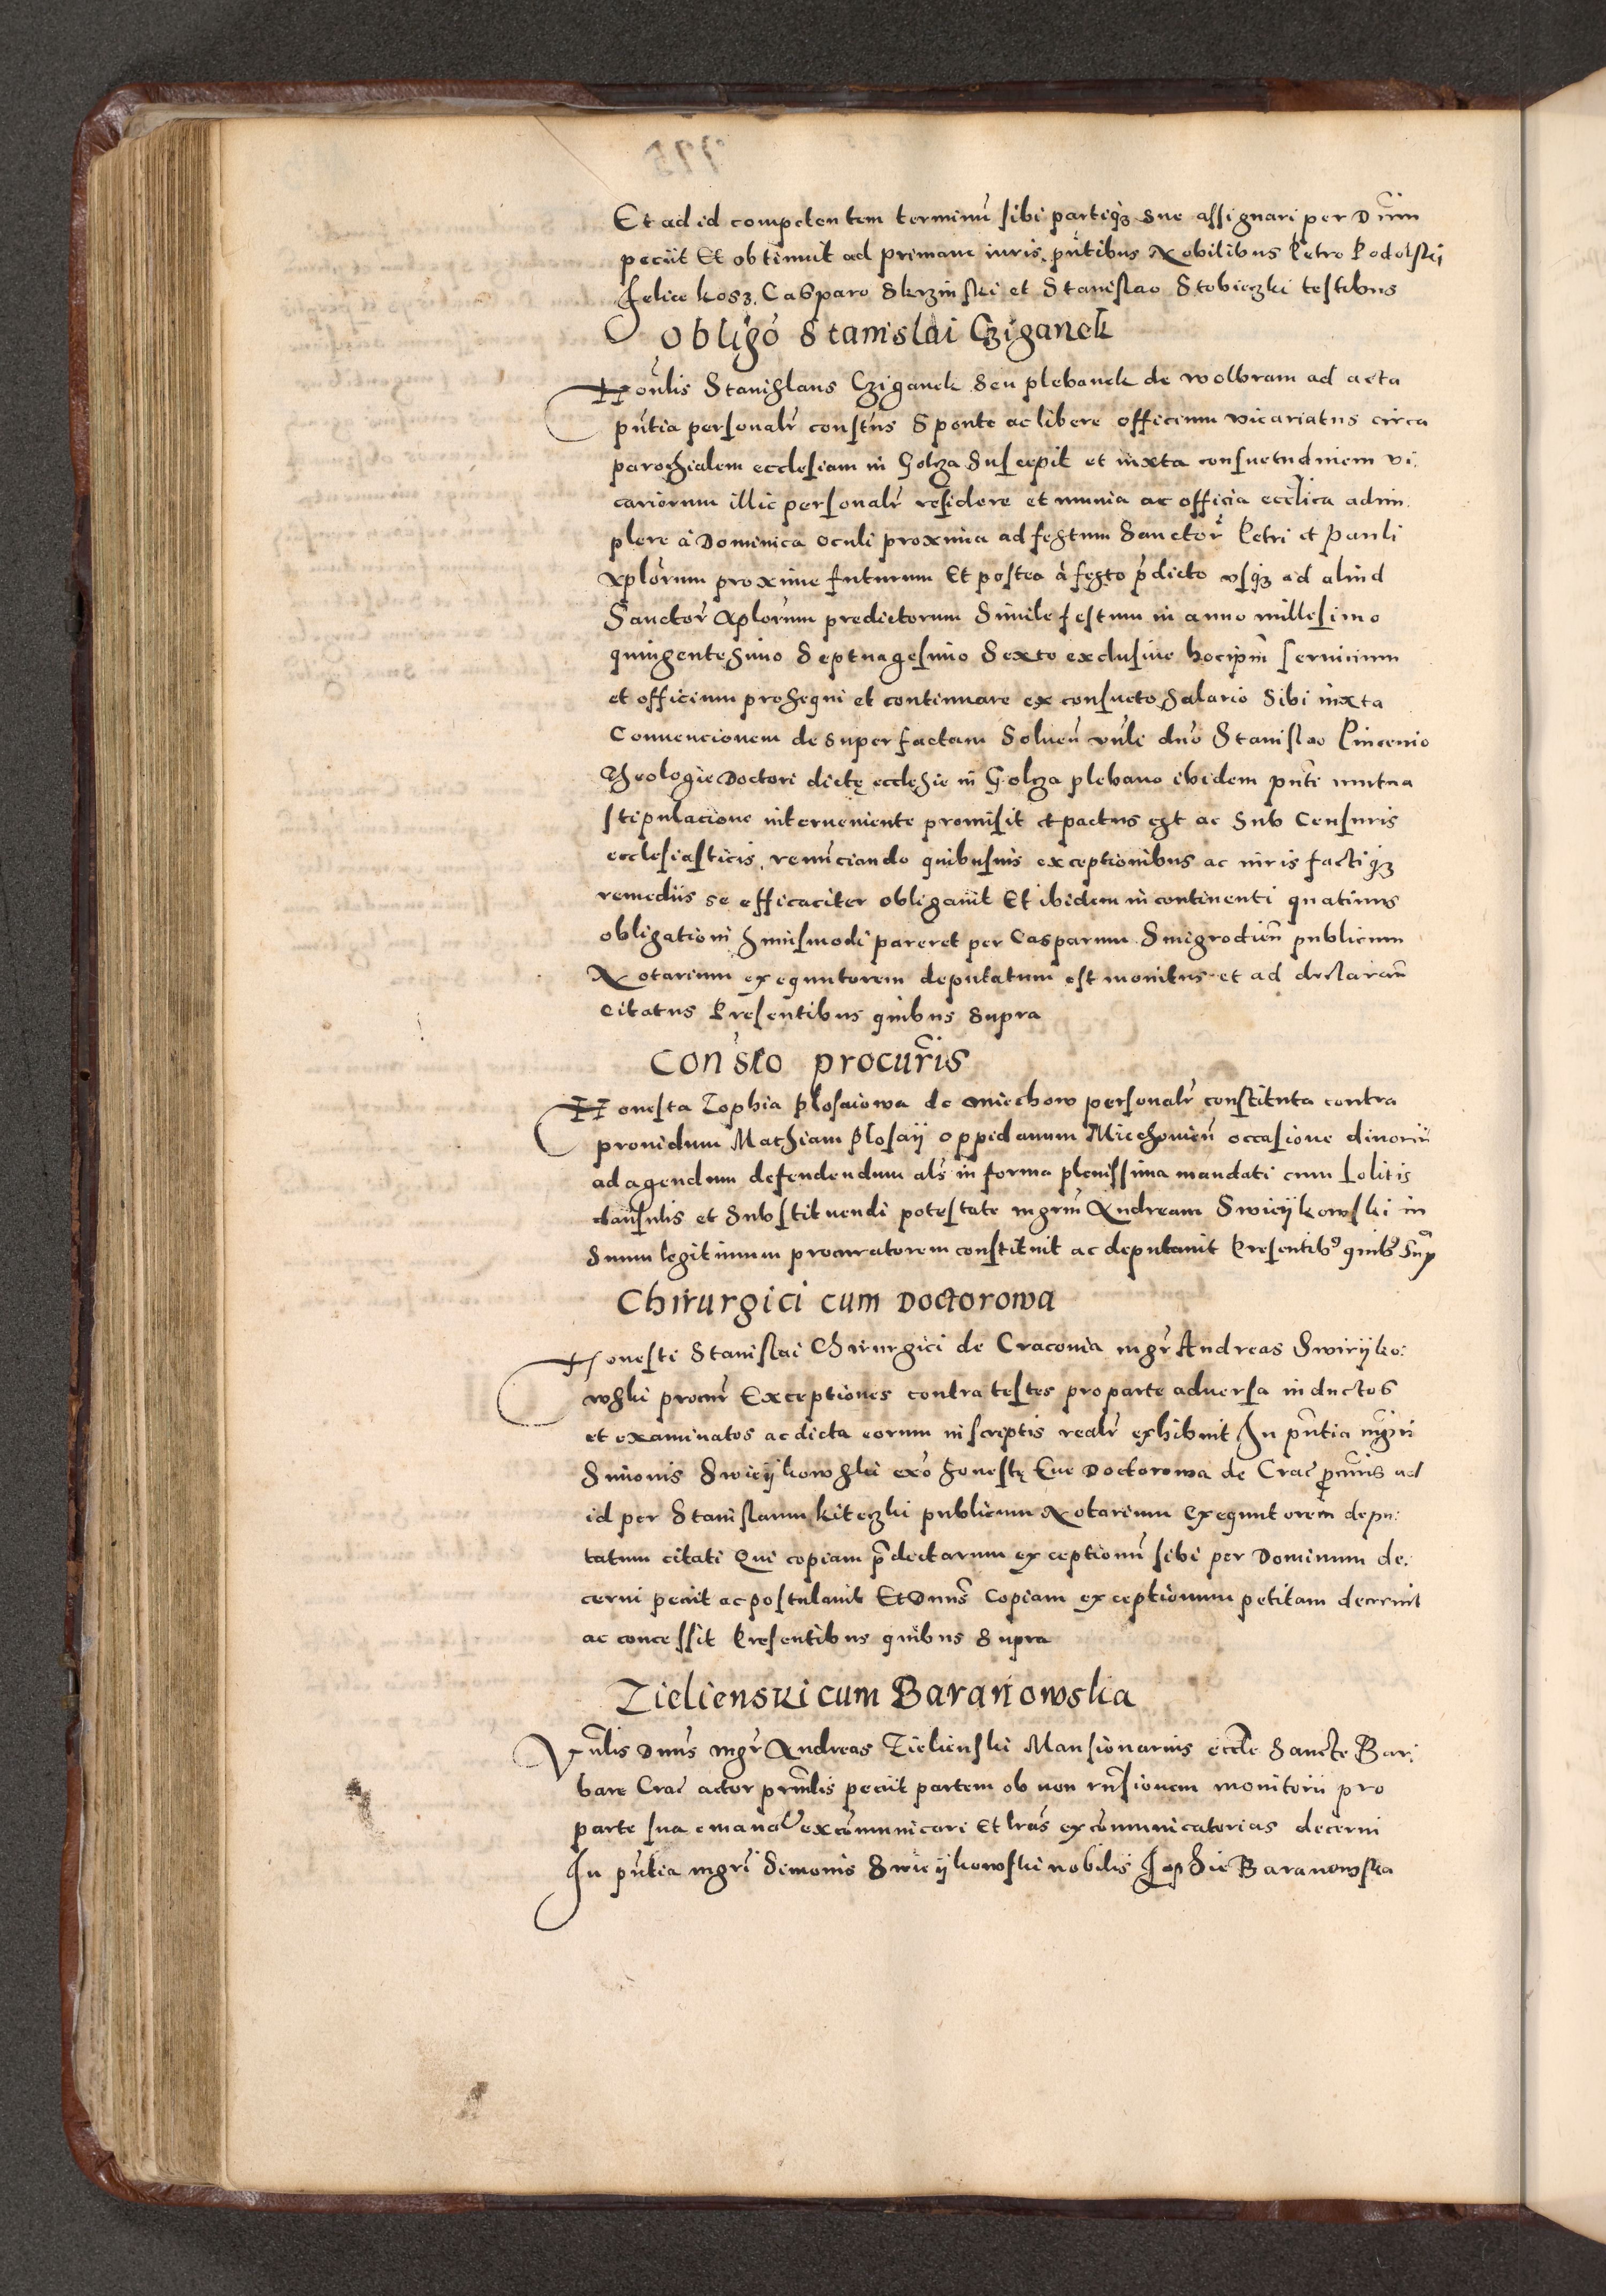 Et ad id competentem terminũ sibi partiq̃ sue assignari per Dnm̃
peciit Et obtinuit ad primam iuris. pñtibus Nobilibus Petro Podolski
Felice kosz, Casparo Skrzinski et Stanislao Stobieczki testibus
Obligõ Stanislai Cziganek
Honlis̃ Stanislaus Cziganek Seu plebanek de wolbram ad acta
pñtia personalr̃ constus̃ Sponte ac libere officium vicariatus circa
parochialem ecclesiam in Golcza Suscepit et iuxta consuetudinem vi:
cariorum illic personalr̃ residere et munia ac officia ecclica adim:
plere à Dominica Oculi proxima ad festum Sanctor̃ Petri et Pauli
Aplõrum proxime futurum Et postea à festo p̃dicto vsq̃ ad aliud
Sanctor̃ Aplõrum predictorum Simile festum in anno millesimo
quingentesimo Septuagesimo Sexto exclusiue hocipm̃ seruicium
et officium prosequi et continuare ex consueto Salario Sibi iuxta
Conuencionem desuper factam Soluen̄ vnlĩ dnõ Stanislao Pincenio
Theologie Doctori dictę ecclesie in Golcza plebano ibidem pñti mutua
stipulacione interueniente promisit et pactus est ac Sub Censuris
ecclesiasticis, renũciando quibusuis exceptionibus ac iuris factiq̃
remediis se efficaciter obligauit Et ibidem incontinenti quatinus
obligationi huiusmodi pareret per Casparum Smigrodien̄ publicum
Notarium exequutorem deputatum est monitus et ad declaran̄
Citatus Presentibus quibus Supra
Cons̃tio procur̃is
Honesta Zophia Plosaiowa de Miechow personalr̃ constituta contra
prouidum Mathiam Plosaij oppidanum Miechouien̄ occasione diuorcii
ad agendum defendendum als̃ in forma plenissima mandati cum solitis
clausulis et Substituendi potestate mgrm̃ Andream Swieijkowski in
Suum legitimum procuratorem constituit ac deputauit Presentib9 quib9 Sup̃
Chirurgici cum Doctorowa
Honesti Stanislai Chirurgici de Craconia mgr̃ Andreas Swieijko:
wski procur̃ Exceptiones contra testes pro parte aduersa inductos
et examinatos ac dicta eorum in scriptis realr̃ exhibuit In pñtia mgrĩ
Simonis Swieijkowski exõ honestę Eue Doctorowa de Crac̃ procur̃is ad
id per Stanislaum kiteczki publicum Notarium Exequutorem depu:
tatum citati Qui copiam p̃dictarum exceptionũ sibi per Dominum de:
cerni peciit ac postulauit Et Dnus̃ Copiam exceptionum petitam decreuit
ac concessit Presentibus quibus Supra
Zielienski cum Baranowska
Vnlis̃ Dnus̃ mgr̃ Andreas Zielienski Mansionarius eccłe Sancte Bar:
bare Crac̃ actor prñlis peciit partem ob non rñsionem monitorii pro
parte sua emanat̃ excõmunicari Et lrãs excõmunicatorias decerni
In pñtia mgrĩ Simonis Swieijkowski nobilis Zophie Baranowska